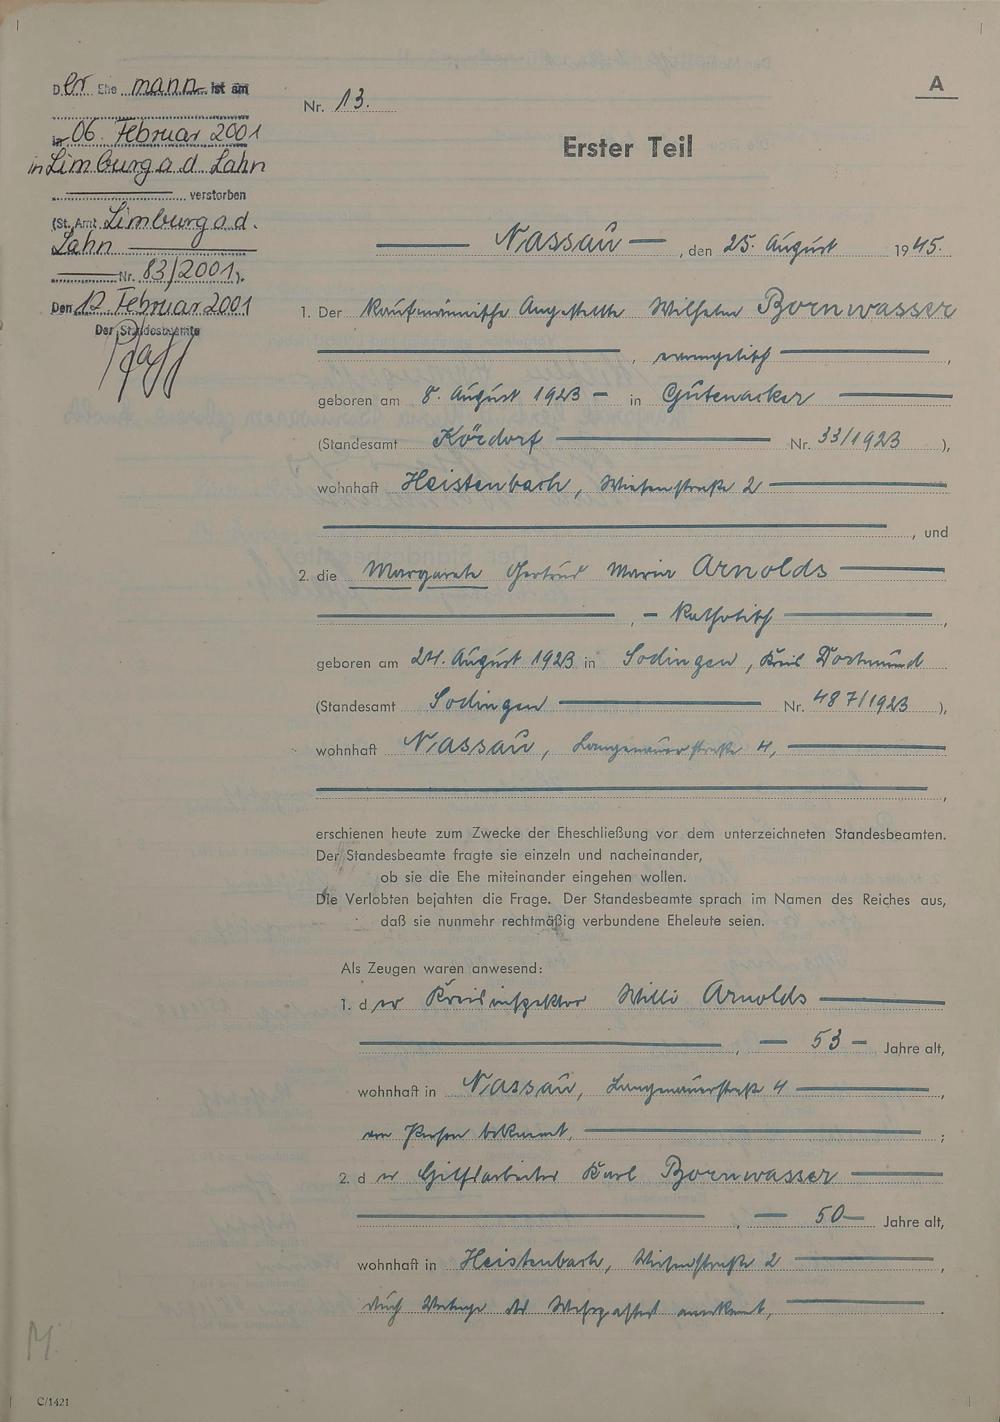 Der Ehe mann ist am
06. Februar 2001
in Limburg a d Lahn
verstorben
(St. Amt Limburg a d.
Lahn
Nr. 83/2001).
Den 12. Februar 2001
Der Standesbeamte
Nr. 13.
A
Erster Teil
Nassau, den 25. August 1945.
1. Der Kaufmännische Angestellte Wilhelm Bornwasser
, evangelisch ,
geboren am 8. August 1923 – in Gutenacker
(Standesamt Kördorf Nr. 33/1923 ),
wohnhaft Heistenbach, Wiesenstraße 2
, und
2. die Margarete Gertrud Maria Arnolds
, – Katholisch ,
geboren am 24. August 1923 in Sodingen, Kreis Dortmund
(Standesamt Sodingen Nr. 487/1923 ),
wohnhaft Nassau, Langenauerstraße 4,
,
erschienen heute zum Zwecke der Eheschließung vor dem unterzeichneten Standesbeamten.
Der Standesbeamte fragte sie einzeln und nacheinander,
ob sie die Ehe miteinander eingehen wollen.
Die Verlobten bejahten die Frage. Der Standesbeamte sprach im Namen des Reiches aus,
daß sie nunmehr rechtmäßig verbundene Eheleute seien.
Als Zeugen waren anwesend:
1. der Kreisinspektor Willi Arnolds
, – 53 – Jahre alt,
wohnhaft in Nassau, Langenauerstraße 4 ,
von Person bekannt, ;
2. der Hilfsarbeiter Karl Bornwasser
, – 50 – Jahre alt,
wohnhaft in Heistenbach, Wiesenstraße 2 ,
durch Vorlage des anerkannt, .
C/1421